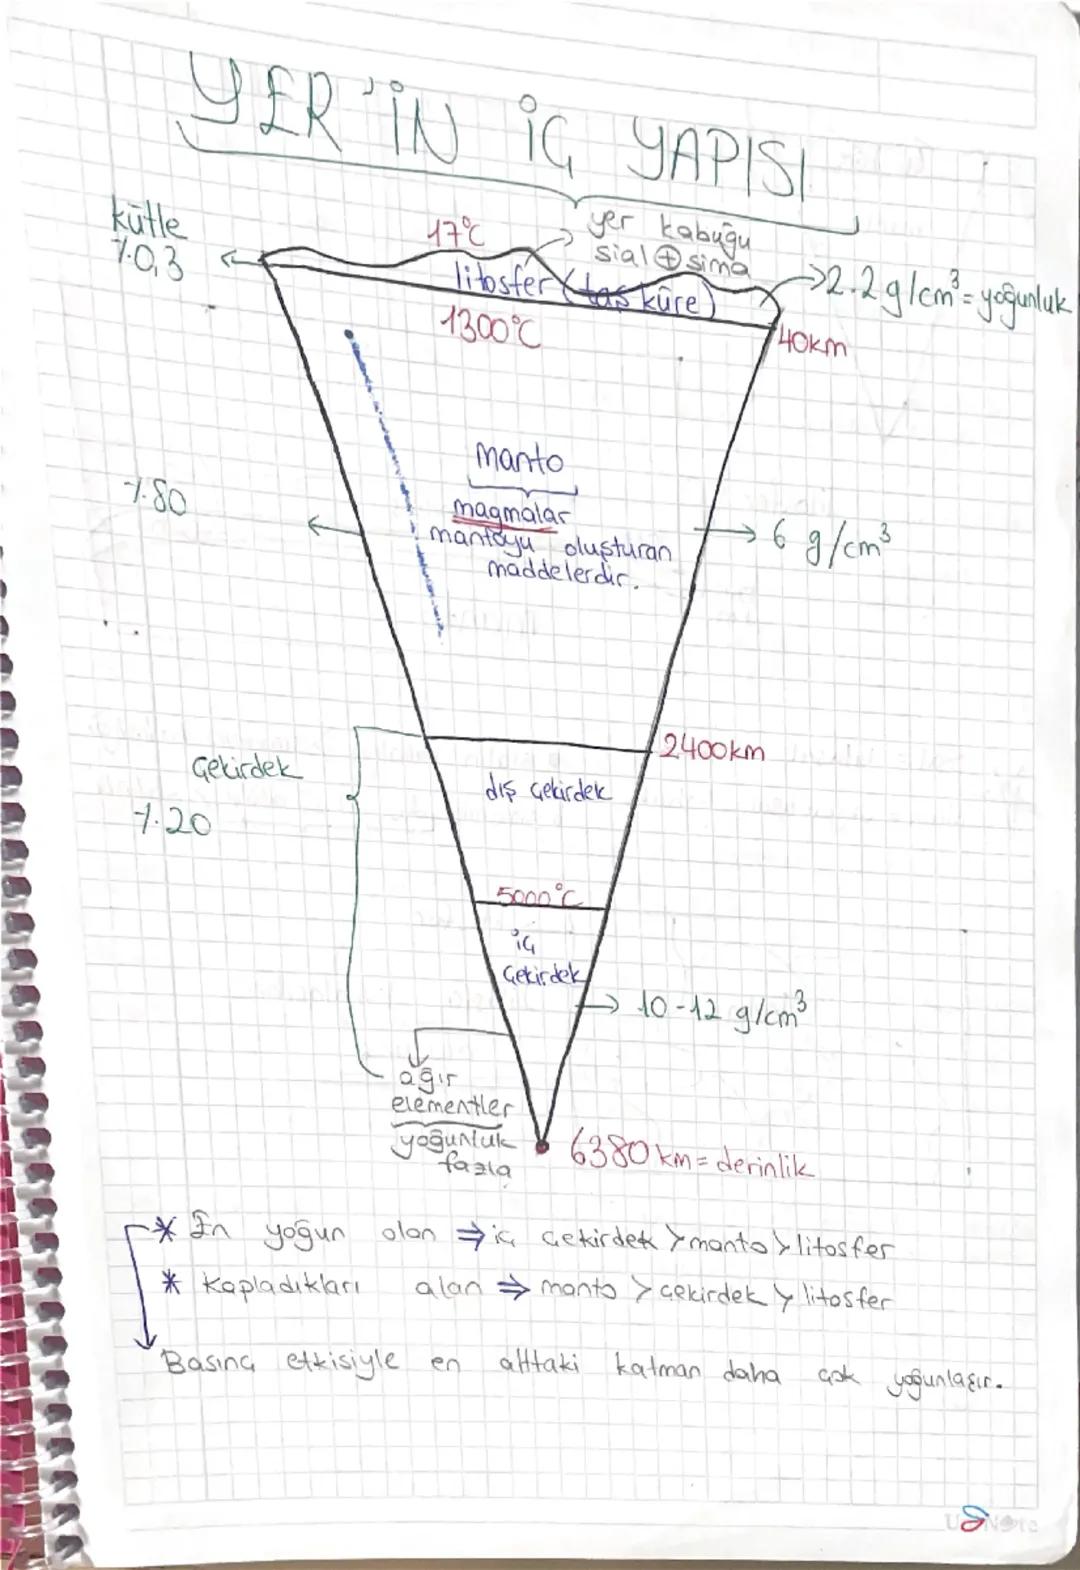 YER'İN İÇ YAPISI
kütle
%0,3
17°C
yer kabuğu
sial ⊕ sima
litosfer (taş küre)
2.2 g/cm³ = yoğunluk
1300°C
40km
manto
%80
magmalar
mantoyu oluşturan
maddelerdir.
6 g/cm³
2400km
Çekirdek
%20
dış çekirdek
5000°C
iç
çekirdek
10-12 g/cm³
ağır
elementler
yoğunluk
fazla
6380 km = derinlik
* En yoğun olan ⇒ iç çekirdek > manto > litosfer
* Kapladıkları alan ⇒ manto > çekirdek > litosfer
Basınç etkisiyle en alttaki katman daha çok yoğunlaşır.